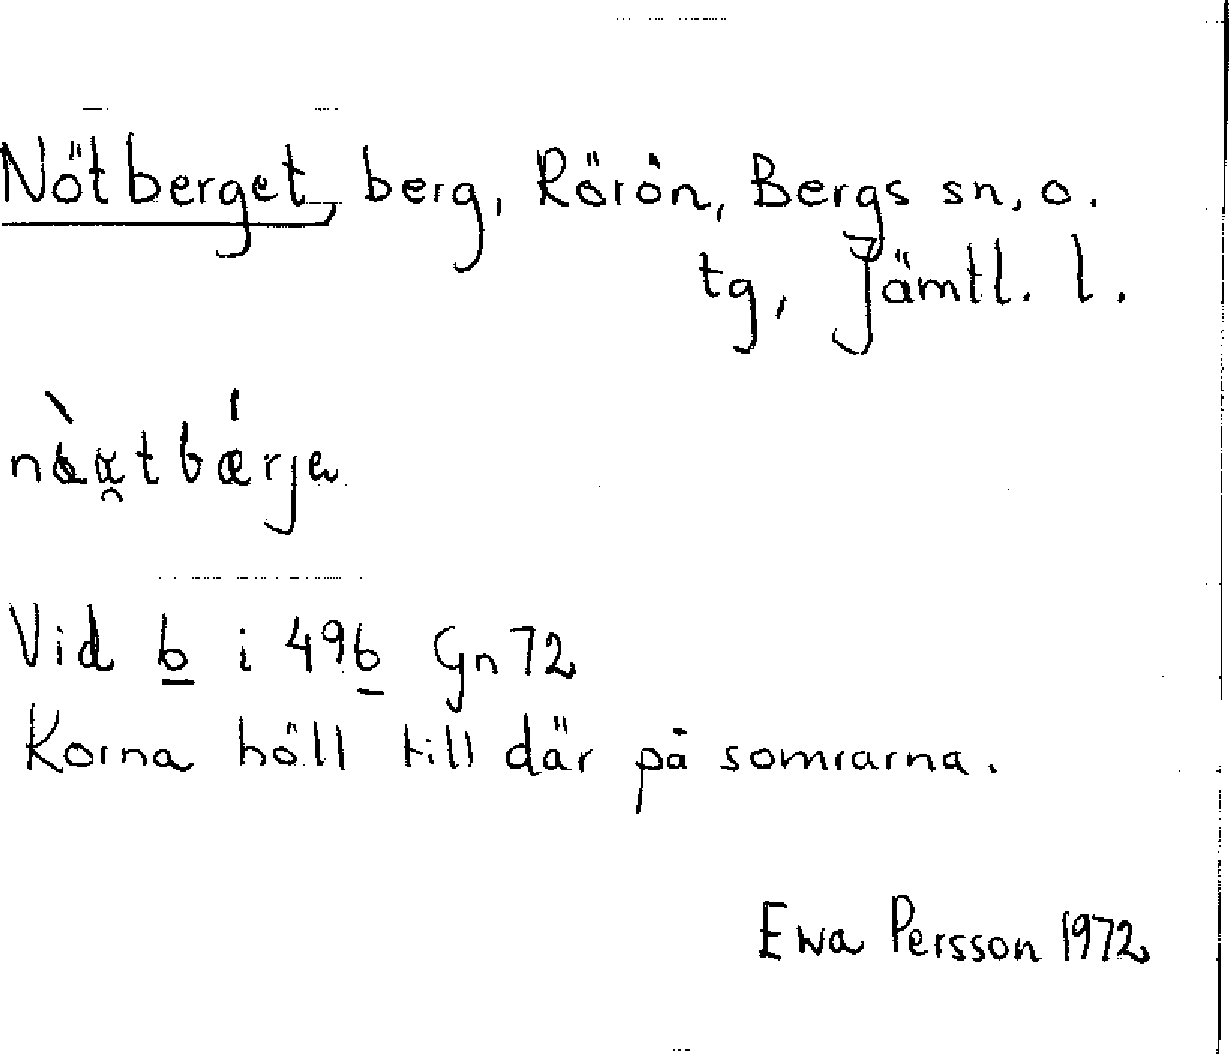 Nötberget, berg, Rörön, Bergs sn, o.
tg, Jämtl. l.
Vid b i 49b Gn 72
Korna höll till där på somrarna.
Ewa Persson 1972